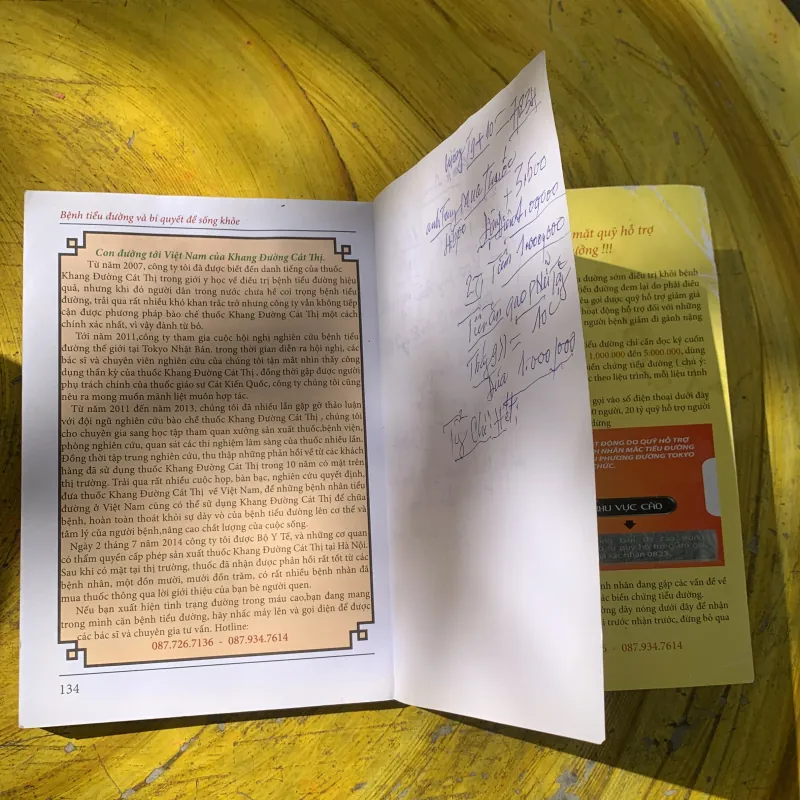 Bệnh tiểu đường và bí quyết để sống khỏe
Con đường tới Việt Nam của Khang Đường Cát Thị.
Từ năm 2007, công ty tôi đã được biết đến danh tiếng của thuốc
Khang Đường Cát Thị trong giới y học về điều trị bệnh tiểu đường hiệu
quả, nhưng khi đó người dân trong nước chưa hề coi trọng bệnh tiểu
đường, trải qua rất nhiều khó khan trắc trở nhưng công ty vẫn không tiếp
cận được phương pháp bào chế thuốc Khang Đường Cát Thị một cách
chính xác nhất, vì vậy đành từ bỏ.
Tới năm 2011,công ty tham gia cuộc hội nghị nghiên cứu bệnh tiểu
đường thế giới tại Tokyo Nhật Bản, trong thời gian diễn ra hội nghị, các
bác sĩ và chuyên viên nghiên cứu của chúng tôi tận mắt nhìn thấy công
dụng thần kỳ của thuốc Khang Đường Cát Thị , đồng thời gặp được người
phụ trách chính của thuốc giáo sư Cát Kiến Quốc, công ty chúng tôi cũng
nêu ra mong muốn mãnh liệt muốn hợp tác.
Từ năm 2011 đến năm 2013, chúng tôi đã nhiều lần gặp gỡ thảo luận
với đội ngũ nghiên cứu bào chế thuốc Khang Đường Cát Thị , chúng tôi
cho chuyên gia sang học tập tham quan xưởng sản xuất thuốc,bệnh viện,
phòng nghiên cứu, quan sát các thí nghiệm lâm sàng của thuốc nhiều lần.
Đồng thời tập trung nghiên cứu, thu thập những phản hồi về từ các khách
hàng đã sử dụng thuốc Khang Đường Cát Thị trong 10 năm có mặt trên
thị trường. Trải qua rất nhiều cuộc họp, bàn bạc, nghiên cứu quyết định,
đưa thuốc Khang Đường Cát Thị về Việt Nam, để những bệnh nhân tiểu
đường ở Việt Nam cũng có thể sử dụng Khang Đường Cát Thị để chữa
bệnh, hoàn toàn thoát khỏi sự dày vò của bệnh tiểu đường lên cơ thể và
tâm lý của người bệnh,nâng cao chất lượng của cuộc sống.
Ngày 2 tháng 7 năm 2014 công ty tôi được Bộ Y Tế, và những cơ quan
có thẩm quyền cấp phép sản xuất thuốc Khang Đường Cát Thị tại Hà Nội.
Sau khi có mặt tại thị trường, thuốc đã nhận được phản hồi rất tốt từ các
bệnh nhân, một đồn mười, mười đồn trăm, có rất nhiều bệnh nhân đã
mua thuốc thông qua lời giới thiệu của bạn bè người quen.
Nếu bạn xuất hiện tình trạng đường trong máu cao,bạn đang mang
trong mình căn bệnh tiểu đường, hãy nhấc máy lên và gọi điện để được
các bác sĩ và chuyên gia tư vấn. Hotline:
087.726.7136 - 087.934.7614
134
mua thuốc
3,500
1.000.000
10
1.000.000
mặt quỹ hỗ trợ
ường !!!
u đường sớm điều trị khỏi bệnh
u đường đem lại do phải điều
êu gọi được quỹ hỗ trợ giảm giá
hoạt động hỗ trợ đối với những
người bệnh giảm đi gánh nặng
ểu đường chỉ cần đọc kỹ cuốn
1.000.000 đến 5.000.000, dùng
iến chứng tiểu đường ( chú ý:
c theo liệu trình, mỗi liệu trình
gọi vào số điện thoại dưới đây
0 người, 20 tỷ quỹ hỗ trợ người
dừng
T ĐỘNG DO QUỸ HỖ TRỢ
H NHÂN MẮC TIỂU ĐƯỜNG
U PHƯƠNG ĐƯỜNG TOKYO
CHỨC.
HU VỰC CÀO
nh nhân đang gặp các vấn đề về
các biến chứng tiểu đường.
ờng dây nóng dưới đây để nhận
i trước nhận trước, đừng bỏ qua
6 - 087.934.7614